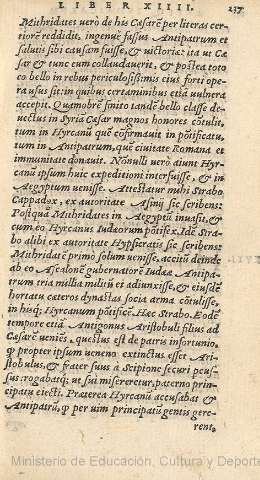 LIBER XIIII. 237
Mithridates uerò de his Cæsarē per literas cer
tiorē reddidit, ingenuè fassus Antipatrum et
salutis sibi causam fuisse, & uictoriæ: ita ut Cæ
sar & tunc eum collaudauerit, & postea toto
eo bello in rebus periculosissimis eius forti ope-
ra usus sit: in quibus certaminibus etiā uulnera
accepit. Quamobrē finito tandē bello classe de-
uectus in Syriā Cæsar magnos honores cōtulit,
tum in Hyrcanū quē cōfirmauit in pōtificatu,
tum in Antipatrum, quē ciuitate Romana et
immunitate donauit. Nōnulli uerò aiunt Hyr-
canū ipsum huic expeditioni interfuisse, & in
Aegyptum uenisse. Attestatur mihi Strabo
Cappadox, ex autoritate Asinij sic scribens:
Postquā Mithridates in Aegyptū inuasit, &
cum eo Hyrcanus Iudæorum pōtifex. Idē Stra-
bo alibi ex autoritate Hypsicratis sic scribens:
Mithridatē primò solum uenisse, accitū deinde
ab eo Ascalonē gubernatorē Iudææ Antipa-
trum tria millia militū ei adiunxisse, & eiusdē
hortatu cæteros dynastas socia arma cōtulisse,
in hisq́; Hyrcanum pōtificē. Hæc Strabo. Eodē
tempore etiā Antigonus Aristobuli filius ad
Cæsarē ueniēs, questus est de patris infortunio,
ꝙ propter ipsum ueneno extinctus esset Ari-
stobulus, & frater suus a Scipione securi pcus-
sus: rogabatq́; ut sui misereretur, paterno prin-
cipatu eiecti. Præterea Hyrcanū accusabat &
Antipatrū, ꝙ per uim principatū gentis gere-
rent,
Ministerio de Educación, Cultura y Deporte